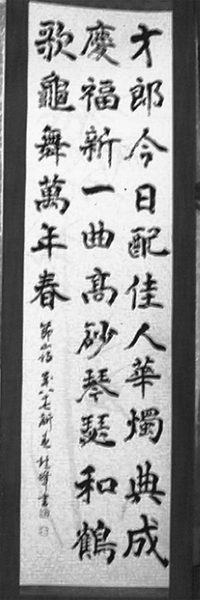 才郎今日配佳人華燭典成
慶福新一曲高砂琴瑟和鶴
歌龜舞萬年春